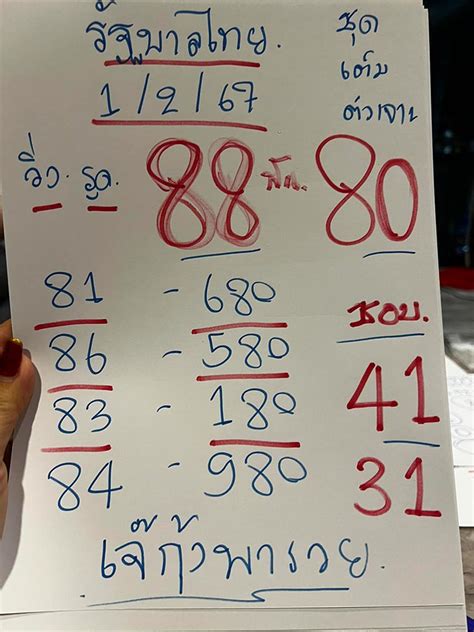 รัฐบาลไทย. ชุด
1/2/67 เต็ม
ตัวเจาะ
วิ่ง. รูด. 88 ฟัน. 80
81 - 680 ชอบ.
86 - 580 41
83 - 180 31
84 - 980
เจ๊กุ้งพารวย.